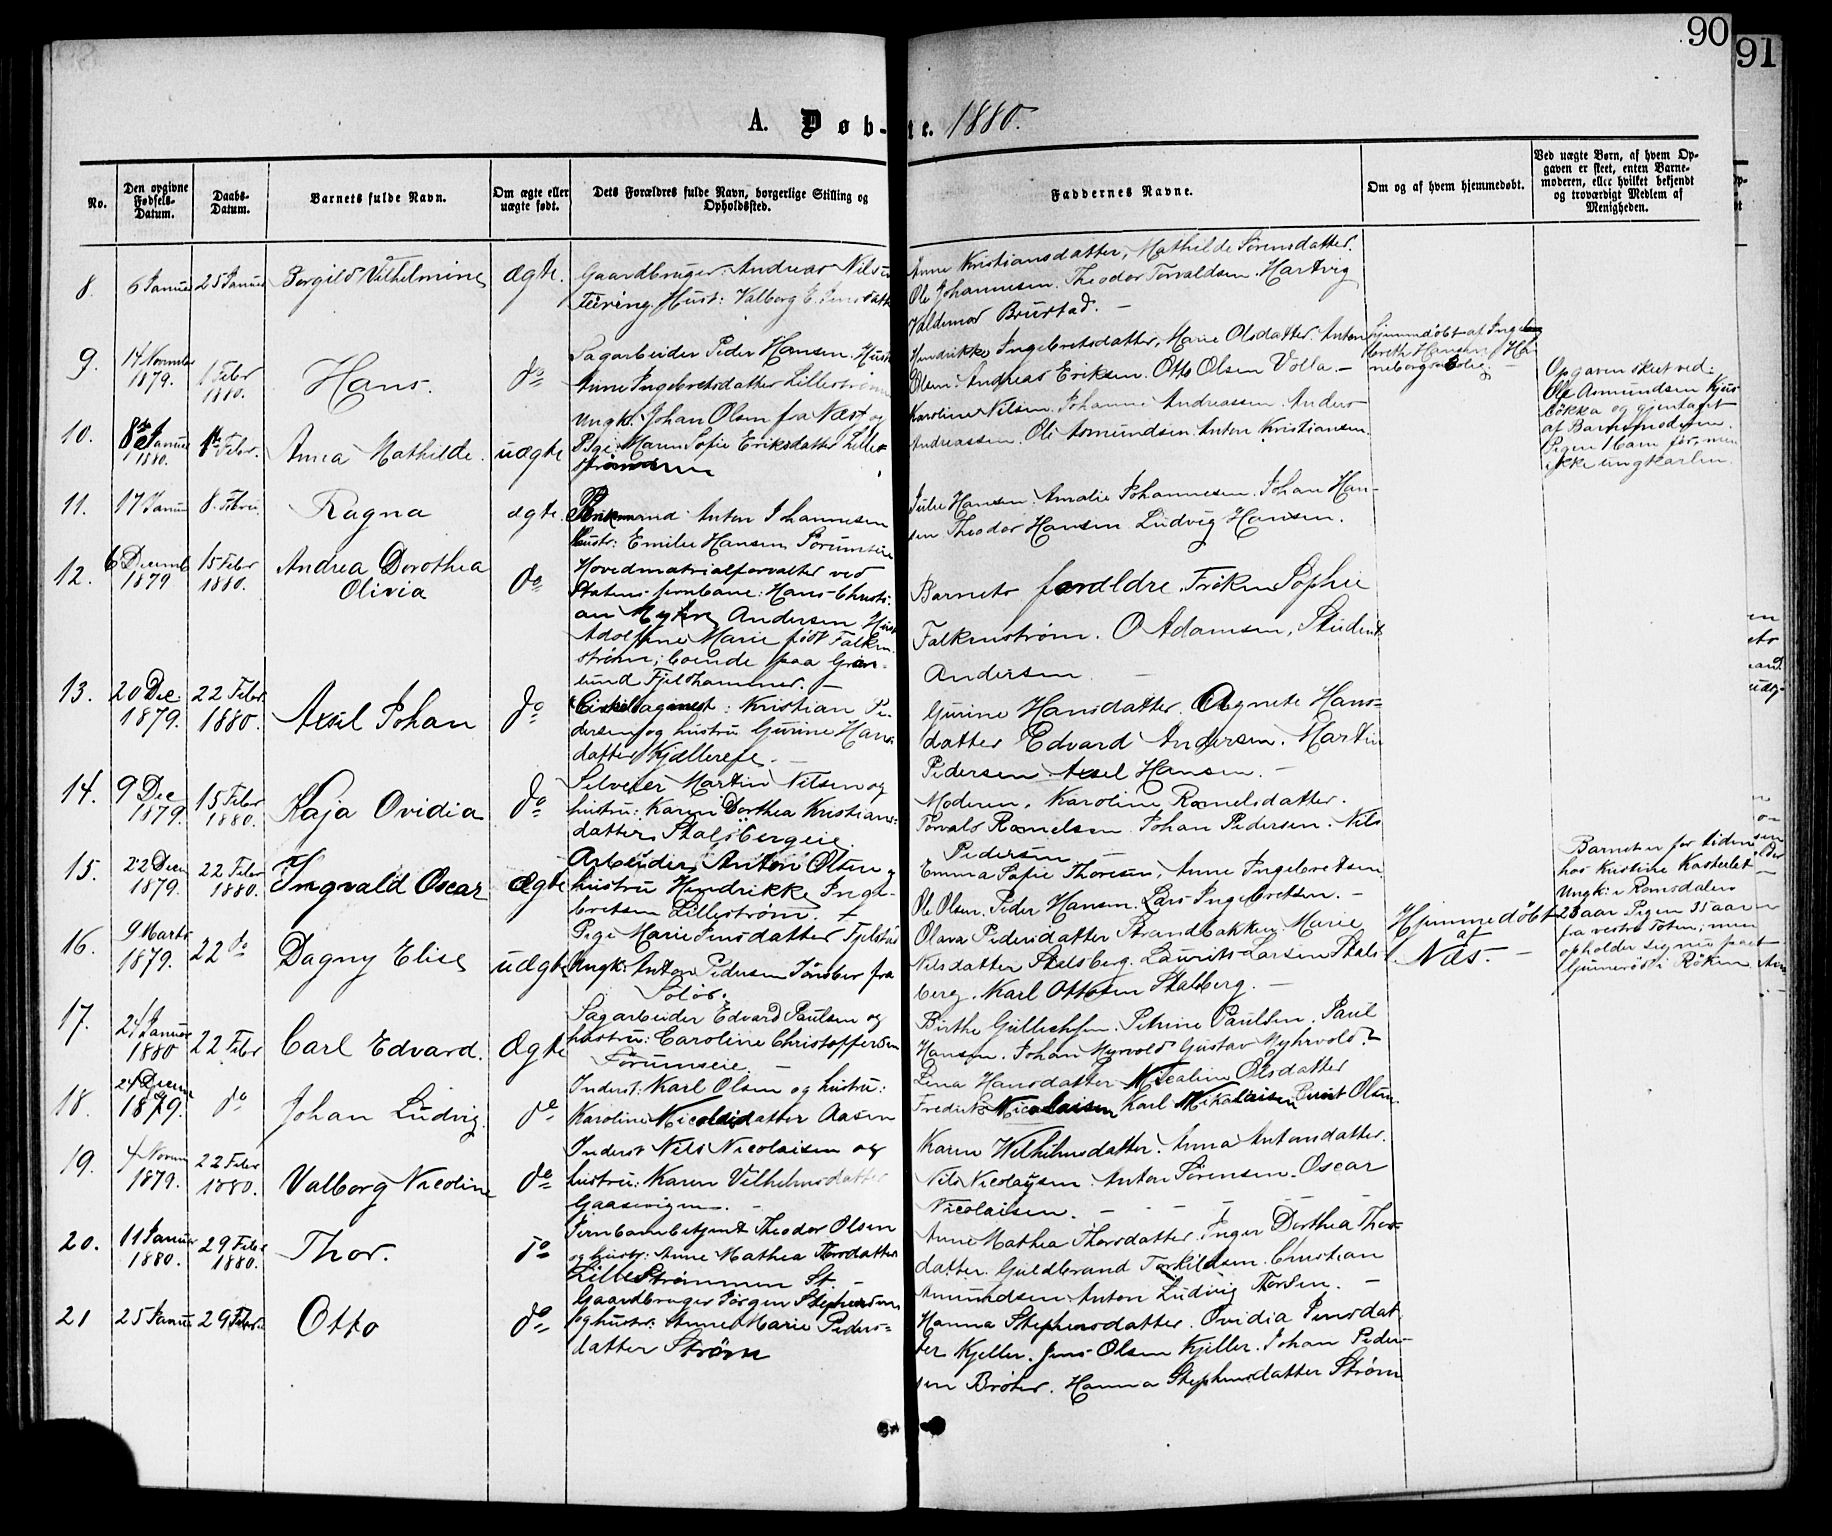 90
91
A. Døb-te. 1880.
No.
Den opgivne Fødsels-Datum.
Daabs-Datum.
Barnets fulde Navn.
Om ægte eller uægte født.
Dets Forældres fulde Navn, borgerlige Stilling og Opholdssted.
Faddernes Navne.
Om og af hvem hjemmedøbt.
Ved uægte Børn, af hvem Opgaven er skeet, enten Barnemoderen, eller hvilket bekjendt og troværdigt Medlem af Menigheden.
8. 6 Januar 25 Januar Borgild Vilhelmine ægte.
Gaardbruger: Andreas Nilsen
Hust: Valborg E. Jensdatter
Anne Kristiansdatter, Mathilde Sørensdatter.
Ole Johannesen. Theodor Torvaldsen. Hartvig
Valdemar Brurstad. —
9. 14 November 1879. 1 Febr 1880 Hans. do
Sagarbeider Peder Hansen. Hust
Anne Ingebretsdatter Lillestrømmen
Hendrikke Ingebretsdatter, Marie Olsdatter. Anton
Olsen. Andreas Eriksen. Otto Olsen Volla. —
Hjemmedøbt af Ingebreth Hansen
10. 8de Januar 1880. 1te Febr. Anna Mathilde. uægte
Ungk. Johan Olsen fra Næst og
Pige: Maren Sofie Eriksdatter Lillestrømmen
Karoline Nilsen. Johanne Andreassen. Anders
Andreassen. Ole Asmundsen. Anton Kristiansen.
Opgaven skeet ved:
Ole Asmundsen
og gjentaget
af Barnemoderen.
Pigen 1 barn før, men
ikke ungkarlen.
11. 17 Januar 8. Febru Ragna ægte.
Anton Johannesen
Hustr: Emilie Hansen Sørumseie
Julie Hansen. Amalie Johannesen. Johan Hansen
Theodor Hansen Ludvig Hansen.
12. 6 Decemb 1879 15 Febr 1880. Andrea Dorothea
Olivia do
Hovedmatrialforvalter ved
Statens Jernbane: Hans Christian
Myhre Andersen Hust
Adolfine Marie født Falkenstrøm;
boende paa Grønlund
Fjeldhammer. —
Barnets forældre. Frøken Sophie
Falkenstrøm. O Adamsen, Student
Andersen —
13. 20 Dec. 1879. 22 Febr 1880. Axel Johan do
Kristian Pedersen
og hustru Gurine Hansdatter
Kjellereie. —
Gurine Hansdatter. Agnete Hansdatter
Edvard Andersen. Martin
Pedersen Axel Hansen. —
14. 9 Dec 1879. 15 Febr 1880. Kaja Ovidia do
Selveier Martin Nilsen og
hustru: Karen Dorthea Kristiansdatter
Stalsbergeie
Moderen. Karoline Ramelsdatter.
Torvald Ramelsen. Johan Pedersen. Nils
Pedersen
15. 22 Decm 1879. 22 Febr 1880. Ingvald Oscar Ægte
Arbeider Anton Olsen og
hustru Hendrikke Ingebretsen
Lillestrøm.
Emma Sofie Thoresen, Anne Ingebretsen
Ole Olsen. Peder Hansen. Lars Ingebretsen. —
16. 9 Marts 1879. 22 do Dagny Elise uægte
Pige Marie Jensdatter Fjelstad
Ungk: Anton Pedersen fra
Solør.
Olava Pedersdatter Strandbakken Marie
Nilsdatter Stalsberg. Laurits Larsen Stalsberg.
Karl Ottosen Stalsberg. —
Hjemmedøbt
af
Næs. —
Barnet er for tiden
hos Kristine
Ungk: i Romsdalen
28 aar Pigen 35 aar
fra vestre Toten; men
opholder sig nu paa
i Røken
17. 21 Januar 1880 22 Febr Carl Edvard. Ægte
Sagarbeider Edvard Paulsen og
hustru: Caroline Christoffersen
Sørumseie. —
Birthe Gulliksen. Petrine Paulsen. Paul
Hansen. Johan Myrvold Gustav Myhrvold.
18. 24 Decem 1879. do Johan Ludvig. do
Inderst: Karl Olsen og hustru:
Karoline Nicolaidatter Aasen
Lina Hansdatter Nicaline Olsdatter
Fredrik Nicolaisen Karl Mikalaisen Bernt Olsen.
19. 4 Novem 1879. 22 Febr 1880. Valborg Nicoline do
Inderst Nils Nicolaisen og
hustru: Karen Vilhelmsdatter
Gaasevigen. —
Karen Wilhelmsdatter. Anna Antonsdatter.
Nils Nicolaysen. Anton Sørensen. Oscar
Nicolaisen. —
20. 11 Januar 1880. 29 Febr 1880. Thor. do
Jernbanebetjent Theodor Olsen
og hustr: Anne Mathea Thorsdatter
Lillestrømmen St. —
Anne Mathea Thorsdatter. Inger Dorthea Thorsdatter.
Guldbrand Torkildsen. Christian
Amundsen Anton Ludvig Thorsen. —
21 25 Januar 29 Febru Otto do
Gaardbruger Jørgen Stephensen
og hustr: Anne Marie Pedersdatter
Strøm
Hanna Stephensdatter. Ovidia Jensdatter
Kjeller. Jens Olsen Kjeller. Johan Pedersen
Bråter. Hanna Stephensdatter Strøm